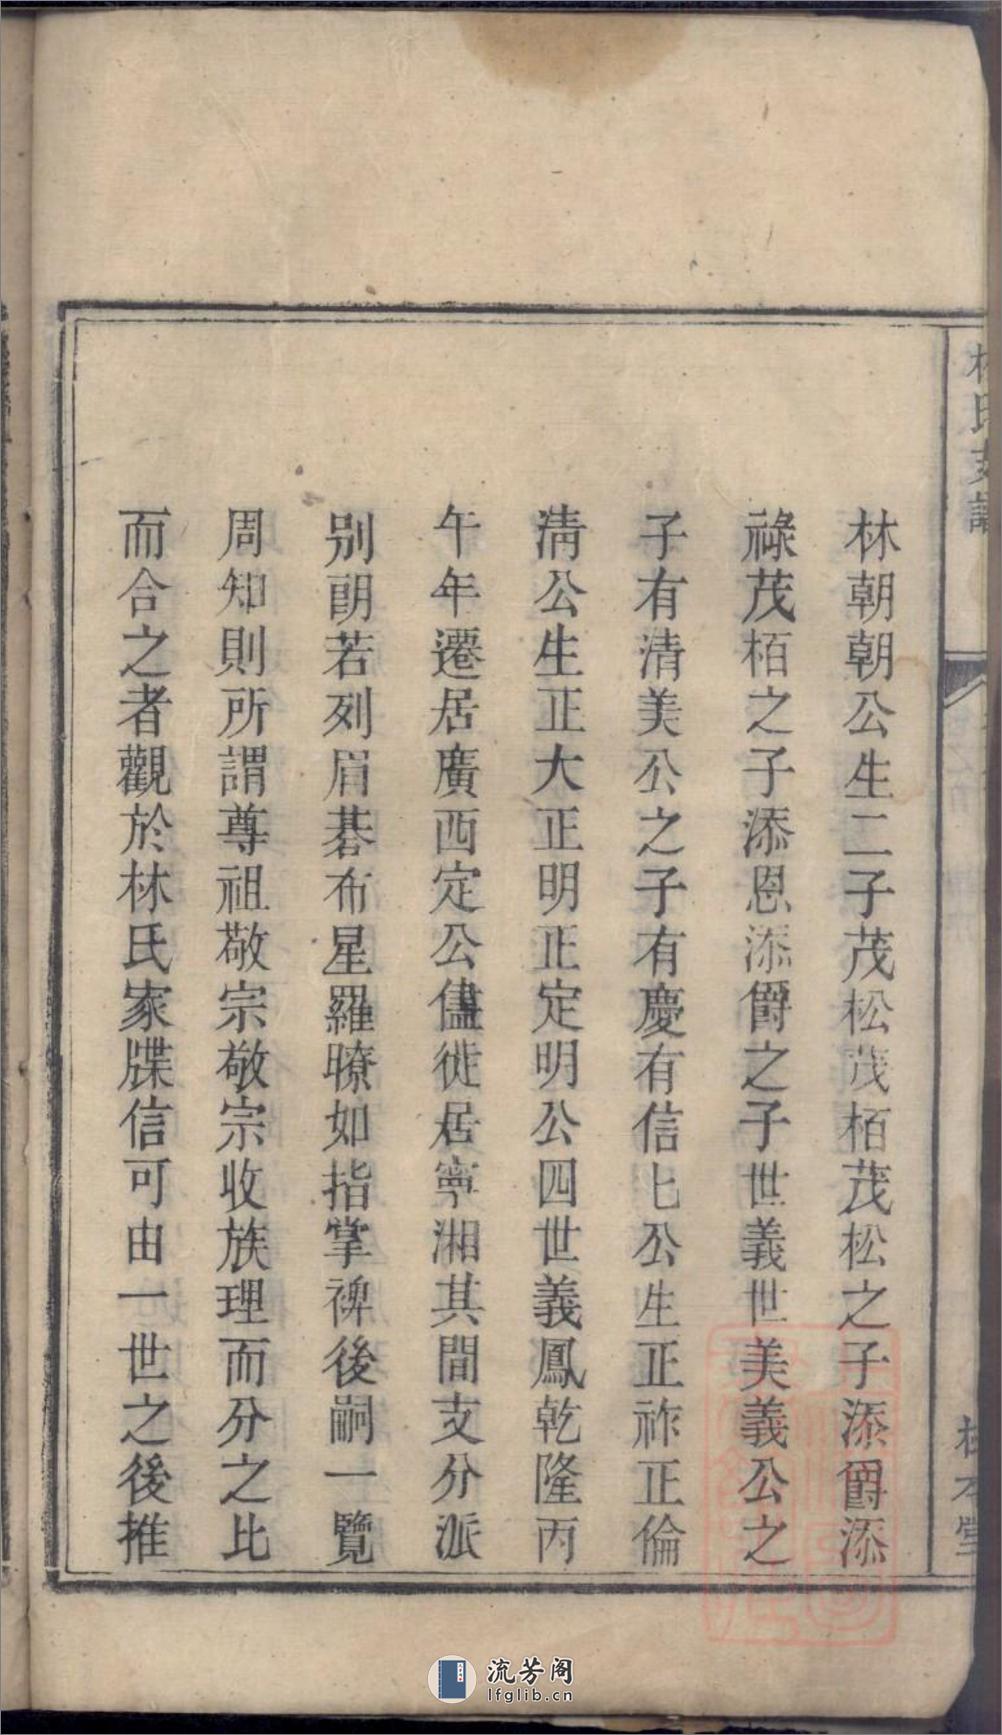 林氏支譜
林朝朝公生二子茂松茂栢茂松之子添爵添
祿茂栢之子添恩添爵之子世義世美義公之
子有清美公之子有慶有信七公生正祚正倫
清公生正大正明正定明公四世義鳳乾隆丙
午年遷居廣西定公儘徙居寧湘其間支分派
别朗若列眉碁布星羅瞭如指掌禆後嗣一覽
周知則所謂尊祖敬宗敬宗收族理而分之比
而合之者觀於林氏家牒信可由一世之後推
流芳阁
lfglib.cn